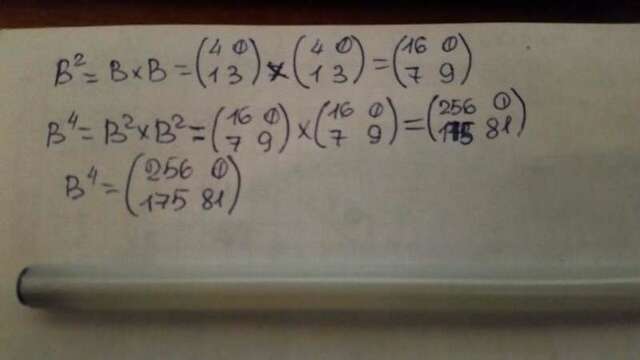 B² = B × B = (4 0 / 1 3) × (4 0 / 1 3) = (16 0 / 7 9)
B⁴ = B² × B² = (16 0 / 7 9) × (16 0 / 7 9) = (256 0 / 175 81)
B⁴ = (256 0 / 175 81)